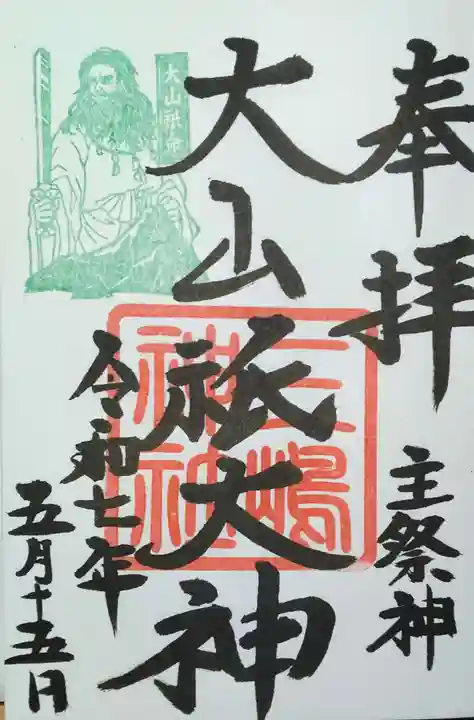 奉拝
主祭神
大山祇大神
三嶋
神社
大山祇命
令和七年
五月十五日